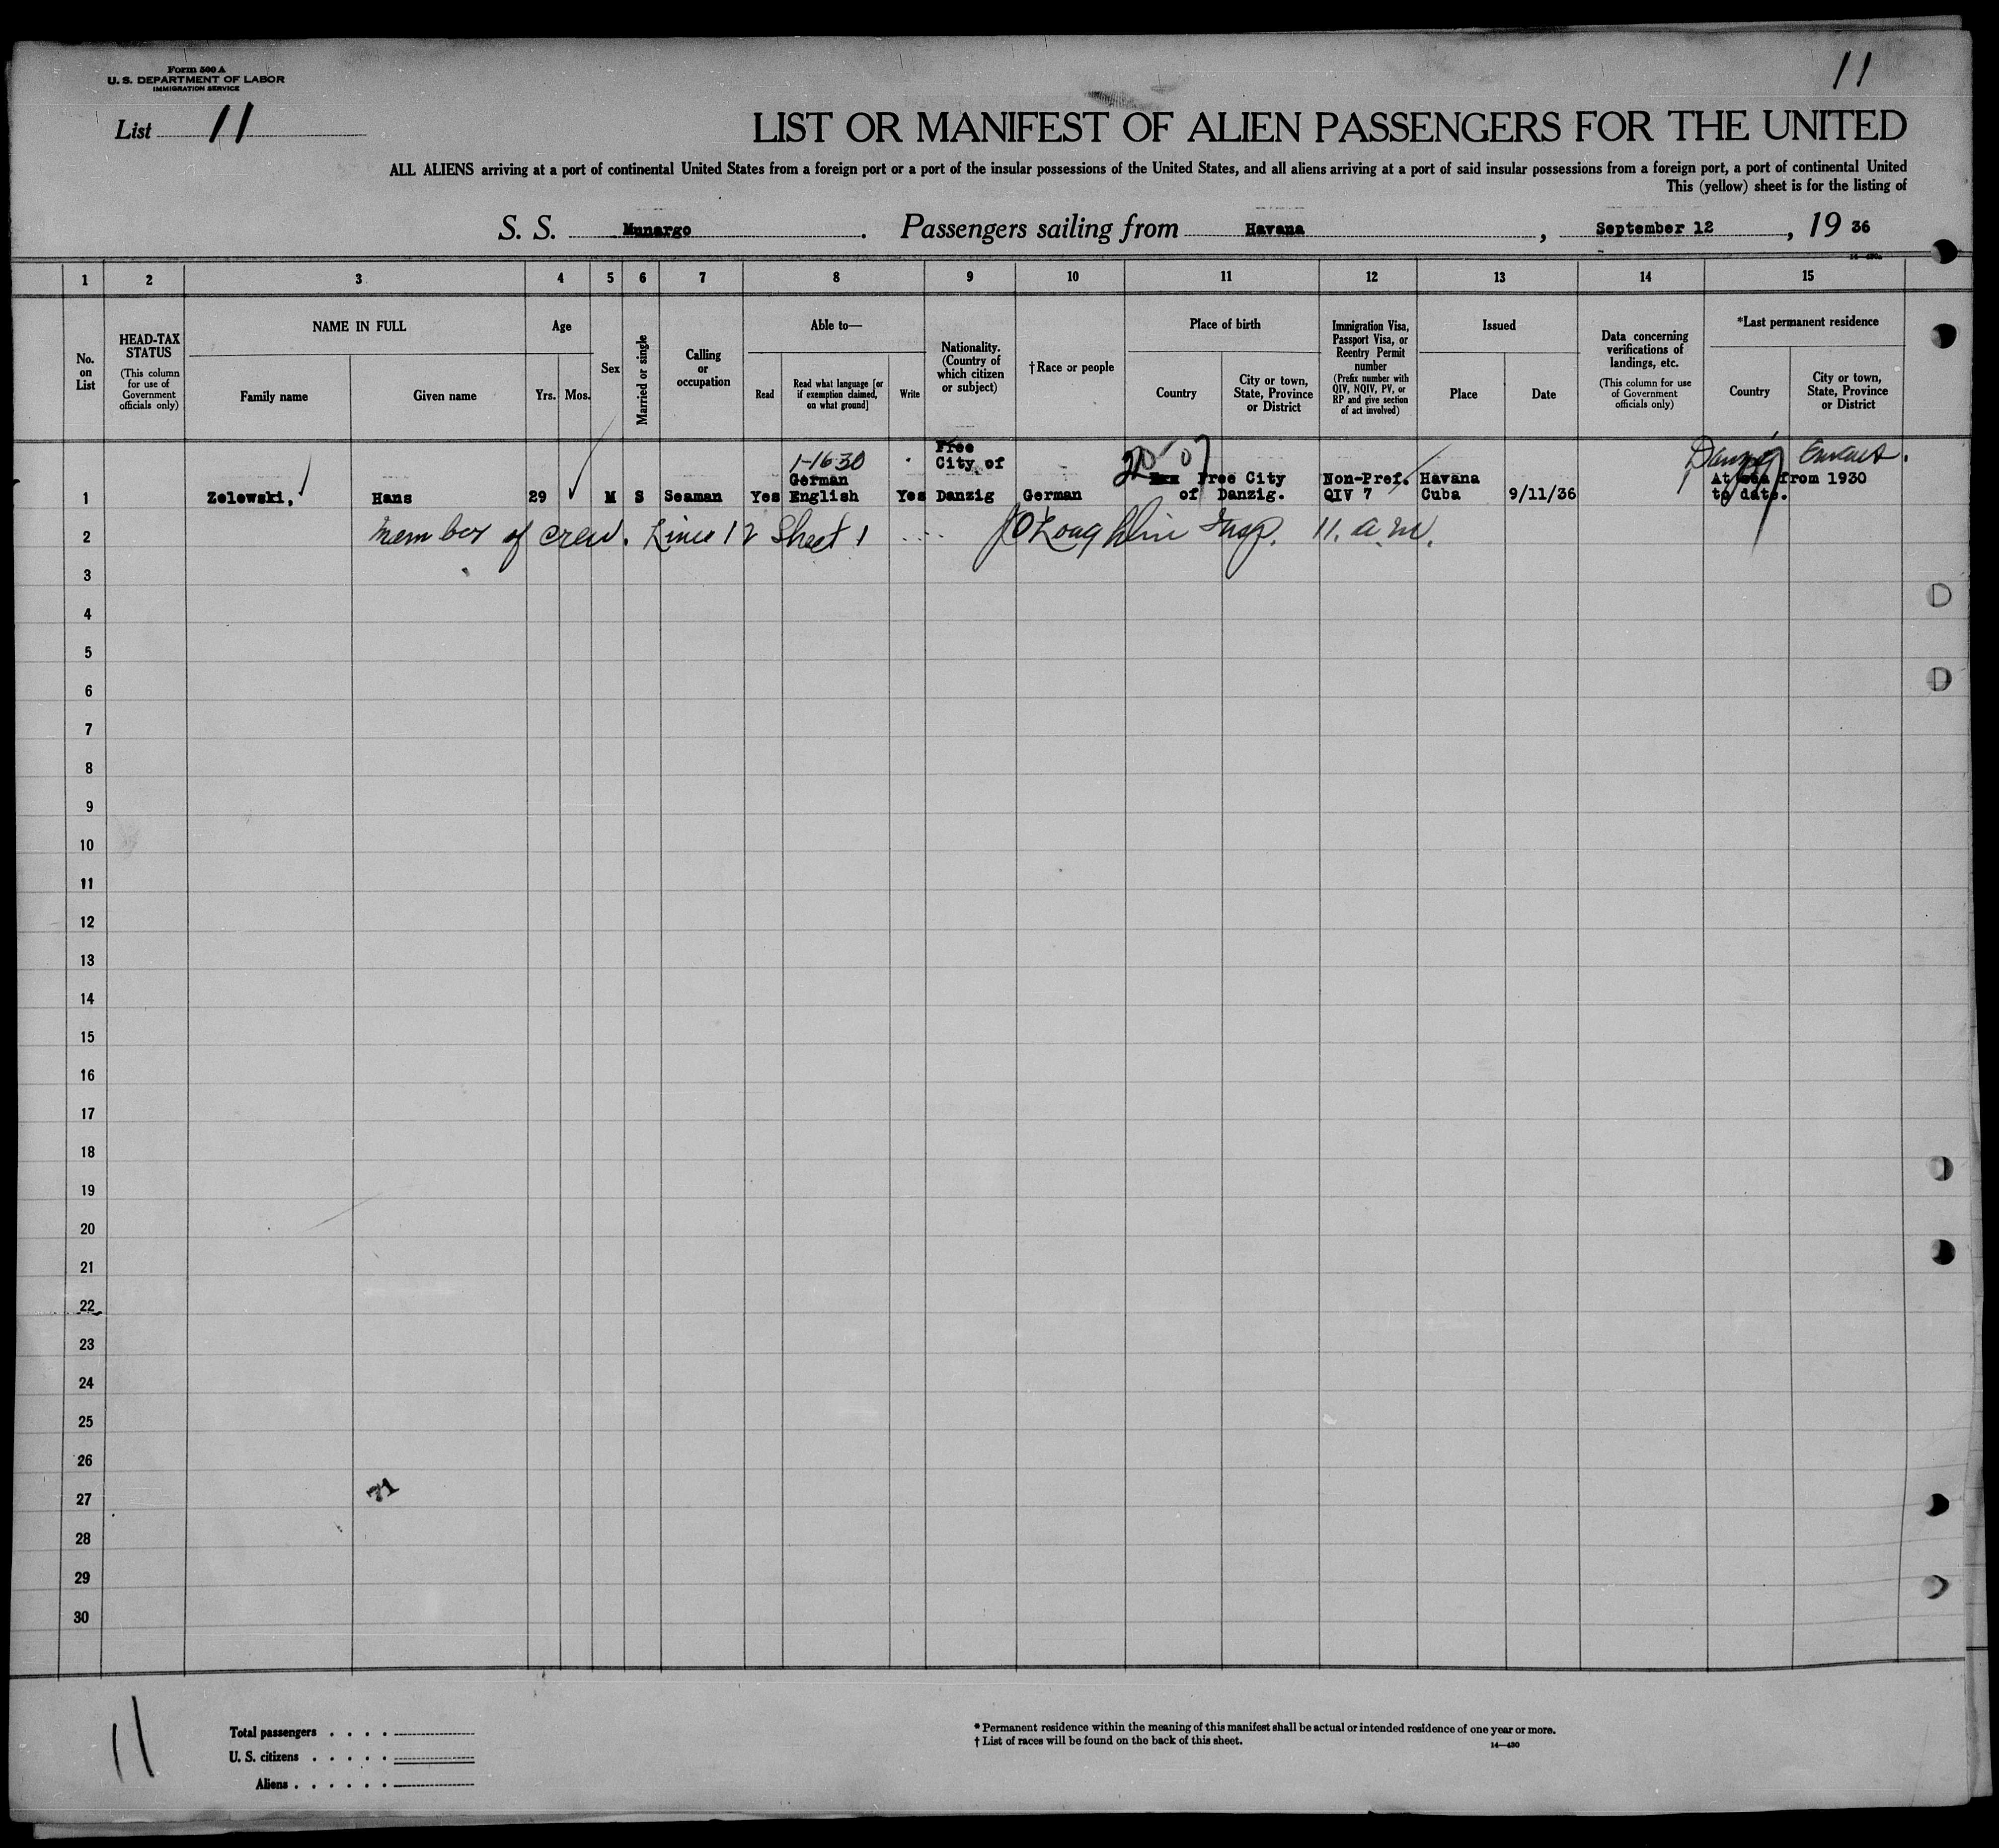 Form 500 A
U. S. DEPARTMENT OF LABOR
IMMIGRATION SERVICE
11
List 11
LIST OR MANIFEST OF ALIEN PASSENGERS FOR THE UNITED
ALL ALIENS arriving at a port of continental United States from a foreign port or a port of the insular possessions of the United States, and all aliens arriving at a port of said insular possessions from a foreign port, a port of continental United
This (yellow) sheet is for the listing of
S. S. Munargo. Passengers sailing from Havana, September 12, 19 36
14—430a
1 2 3 4 5 6 7 8 9 10 11 12 13 14 15
No. on List
HEAD-TAX STATUS
(This column for use of Government officials only)
NAME IN FULL
Family name Given name
Age
Yrs. Mos.
Sex
Married or single
Calling or occupation
Able to—
Read
Read what language [or if exemption claimed, on what ground]
Write
Nationality. (Country of which citizen or subject)
†Race or people
Place of birth
Country
City or town, State, Province or District
Immigration Visa, Passport Visa, or Reentry Permit number
(Prefix number with QIV, NQIV, PV, or RP and give section of act involved)
Issued
Place Date
Data concerning verifications of landings, etc.
(This column for use of Government officials only)
*Last permanent residence
Country
City or town, State, Province or District
1 Zelewski, Hans 29 M S Seaman Yes
1-1630
German
English
Yes
Free
City of
Danzig
German
Free City
of Danzig.
Non-Pref.
QIV 7
Havana
Cuba
9/11/36
Danzig
At sea from 1930
to date.
2 member of crew. Line 12 Sheet 1 JO'Loughlin Insp. 11. a.m.
3
4
5
6
7
8
9
10
11
12
13
14
15
16
17
18
19
20
21
22
23
24
25
26
27
71
28
29
30
11
Total passengers . . . .
U. S. citizens . . . . .
Aliens . . . . . .
* Permanent residence within the meaning of this manifest shall be actual or intended residence of one year or more.
† List of races will be found on the back of this sheet.
14—430